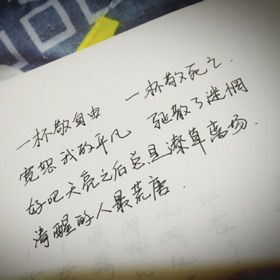 一杯敬自由 一杯敬死亡.
宽恕我的平凡 驱散了迷惘
好吧天亮之后总是潦草离场.
清醒的人最荒唐.